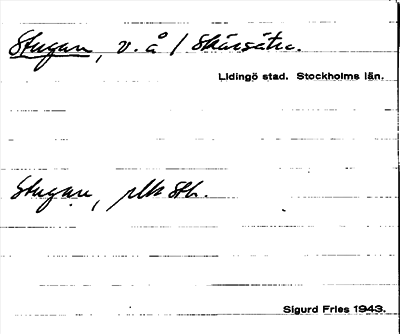 Stugan, v. å / Skärsätra.
Lidingö stad. Stockholms län.
Stugan,
Sigurd Fries 1943.